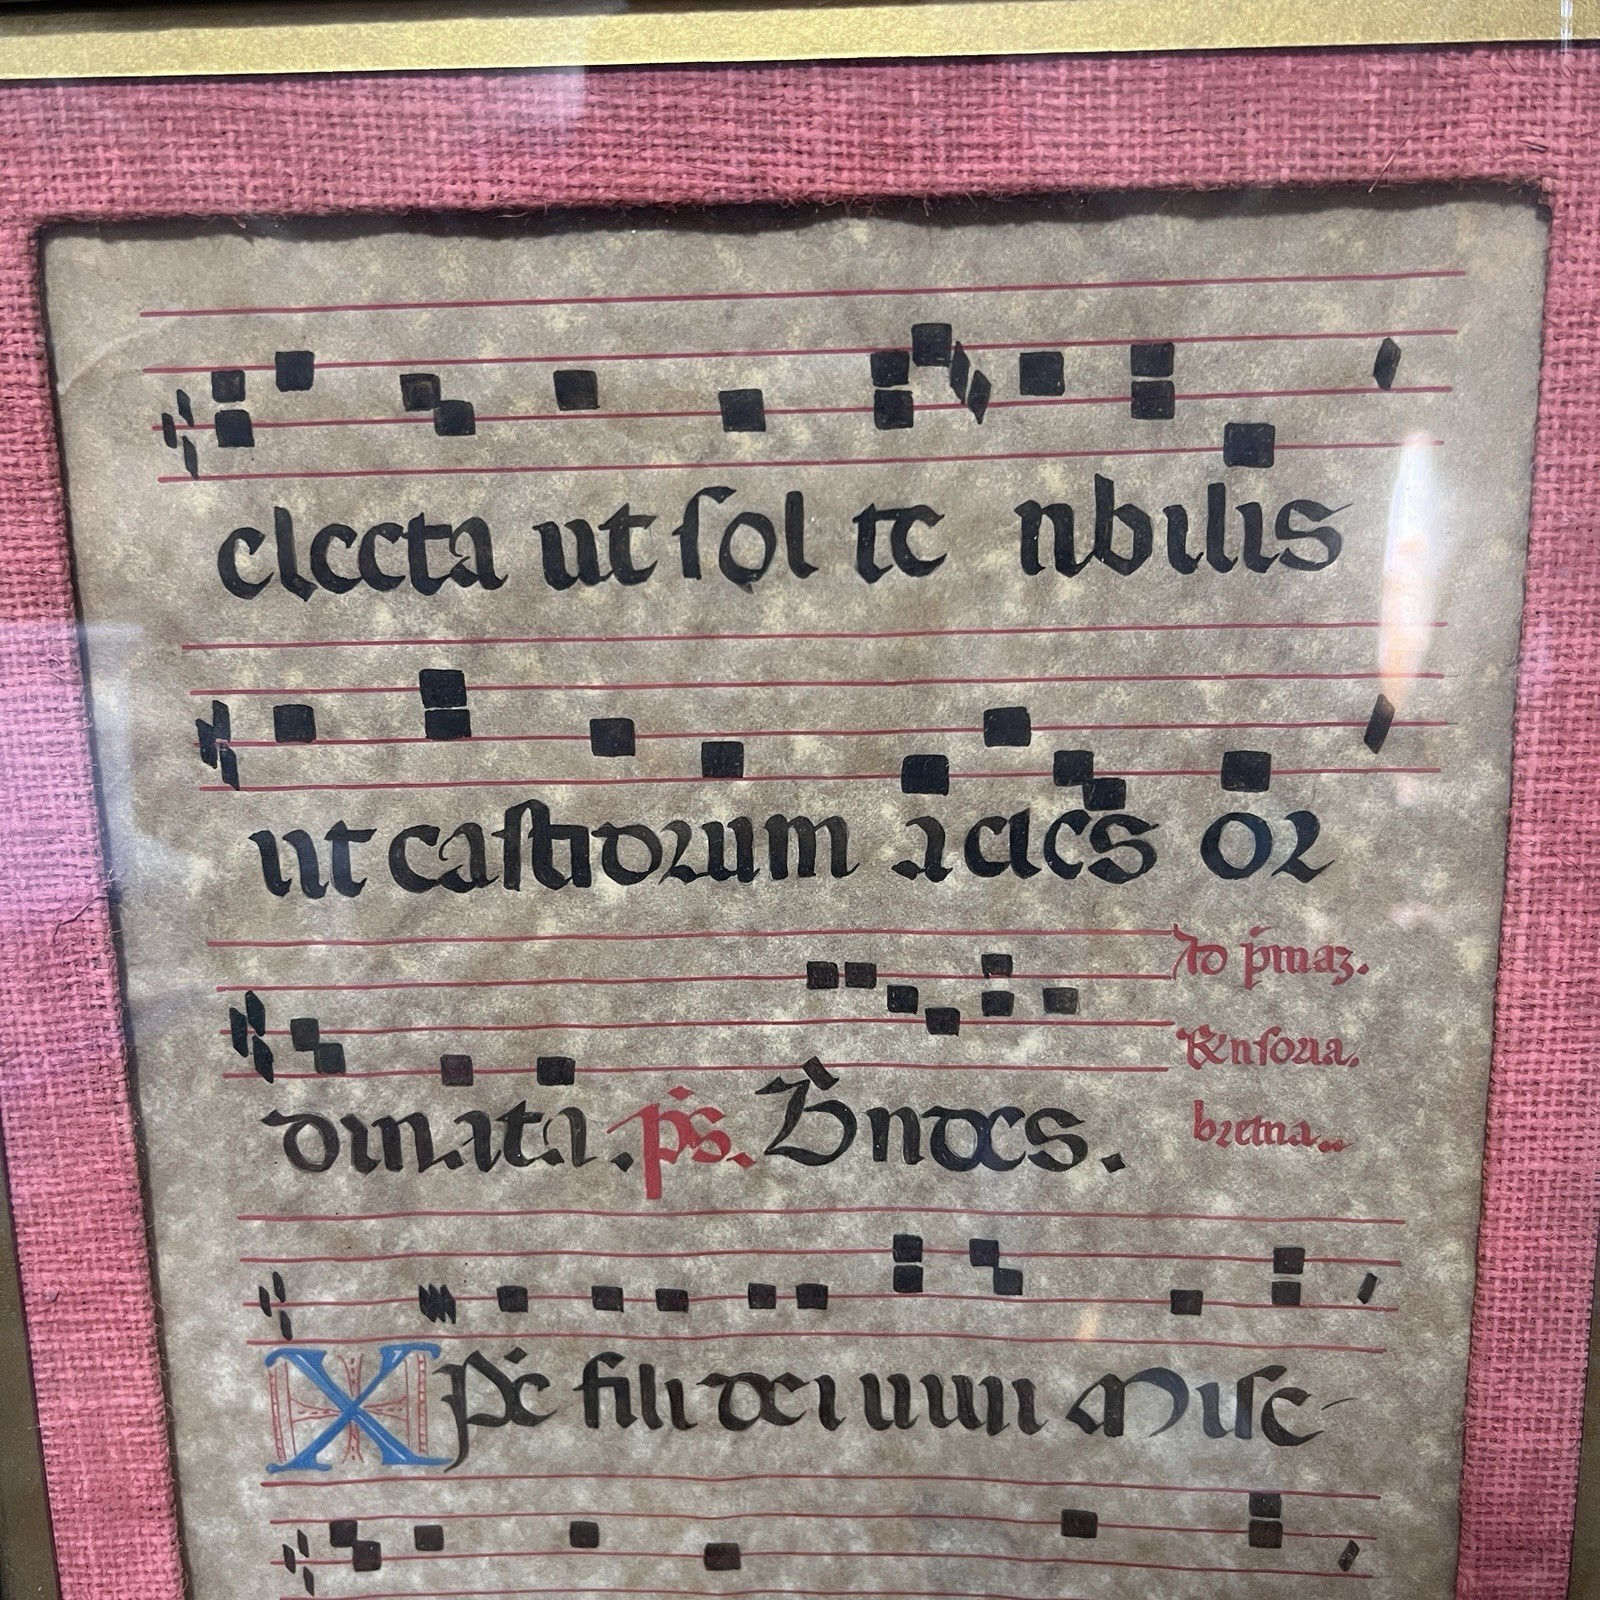 electa ut sol te nbilis
ut castrorum acies or
dinata. ps. Bndes.
Ad pmaz.
Rensoria.
bretna..
XPE fili dei uiui Mise-